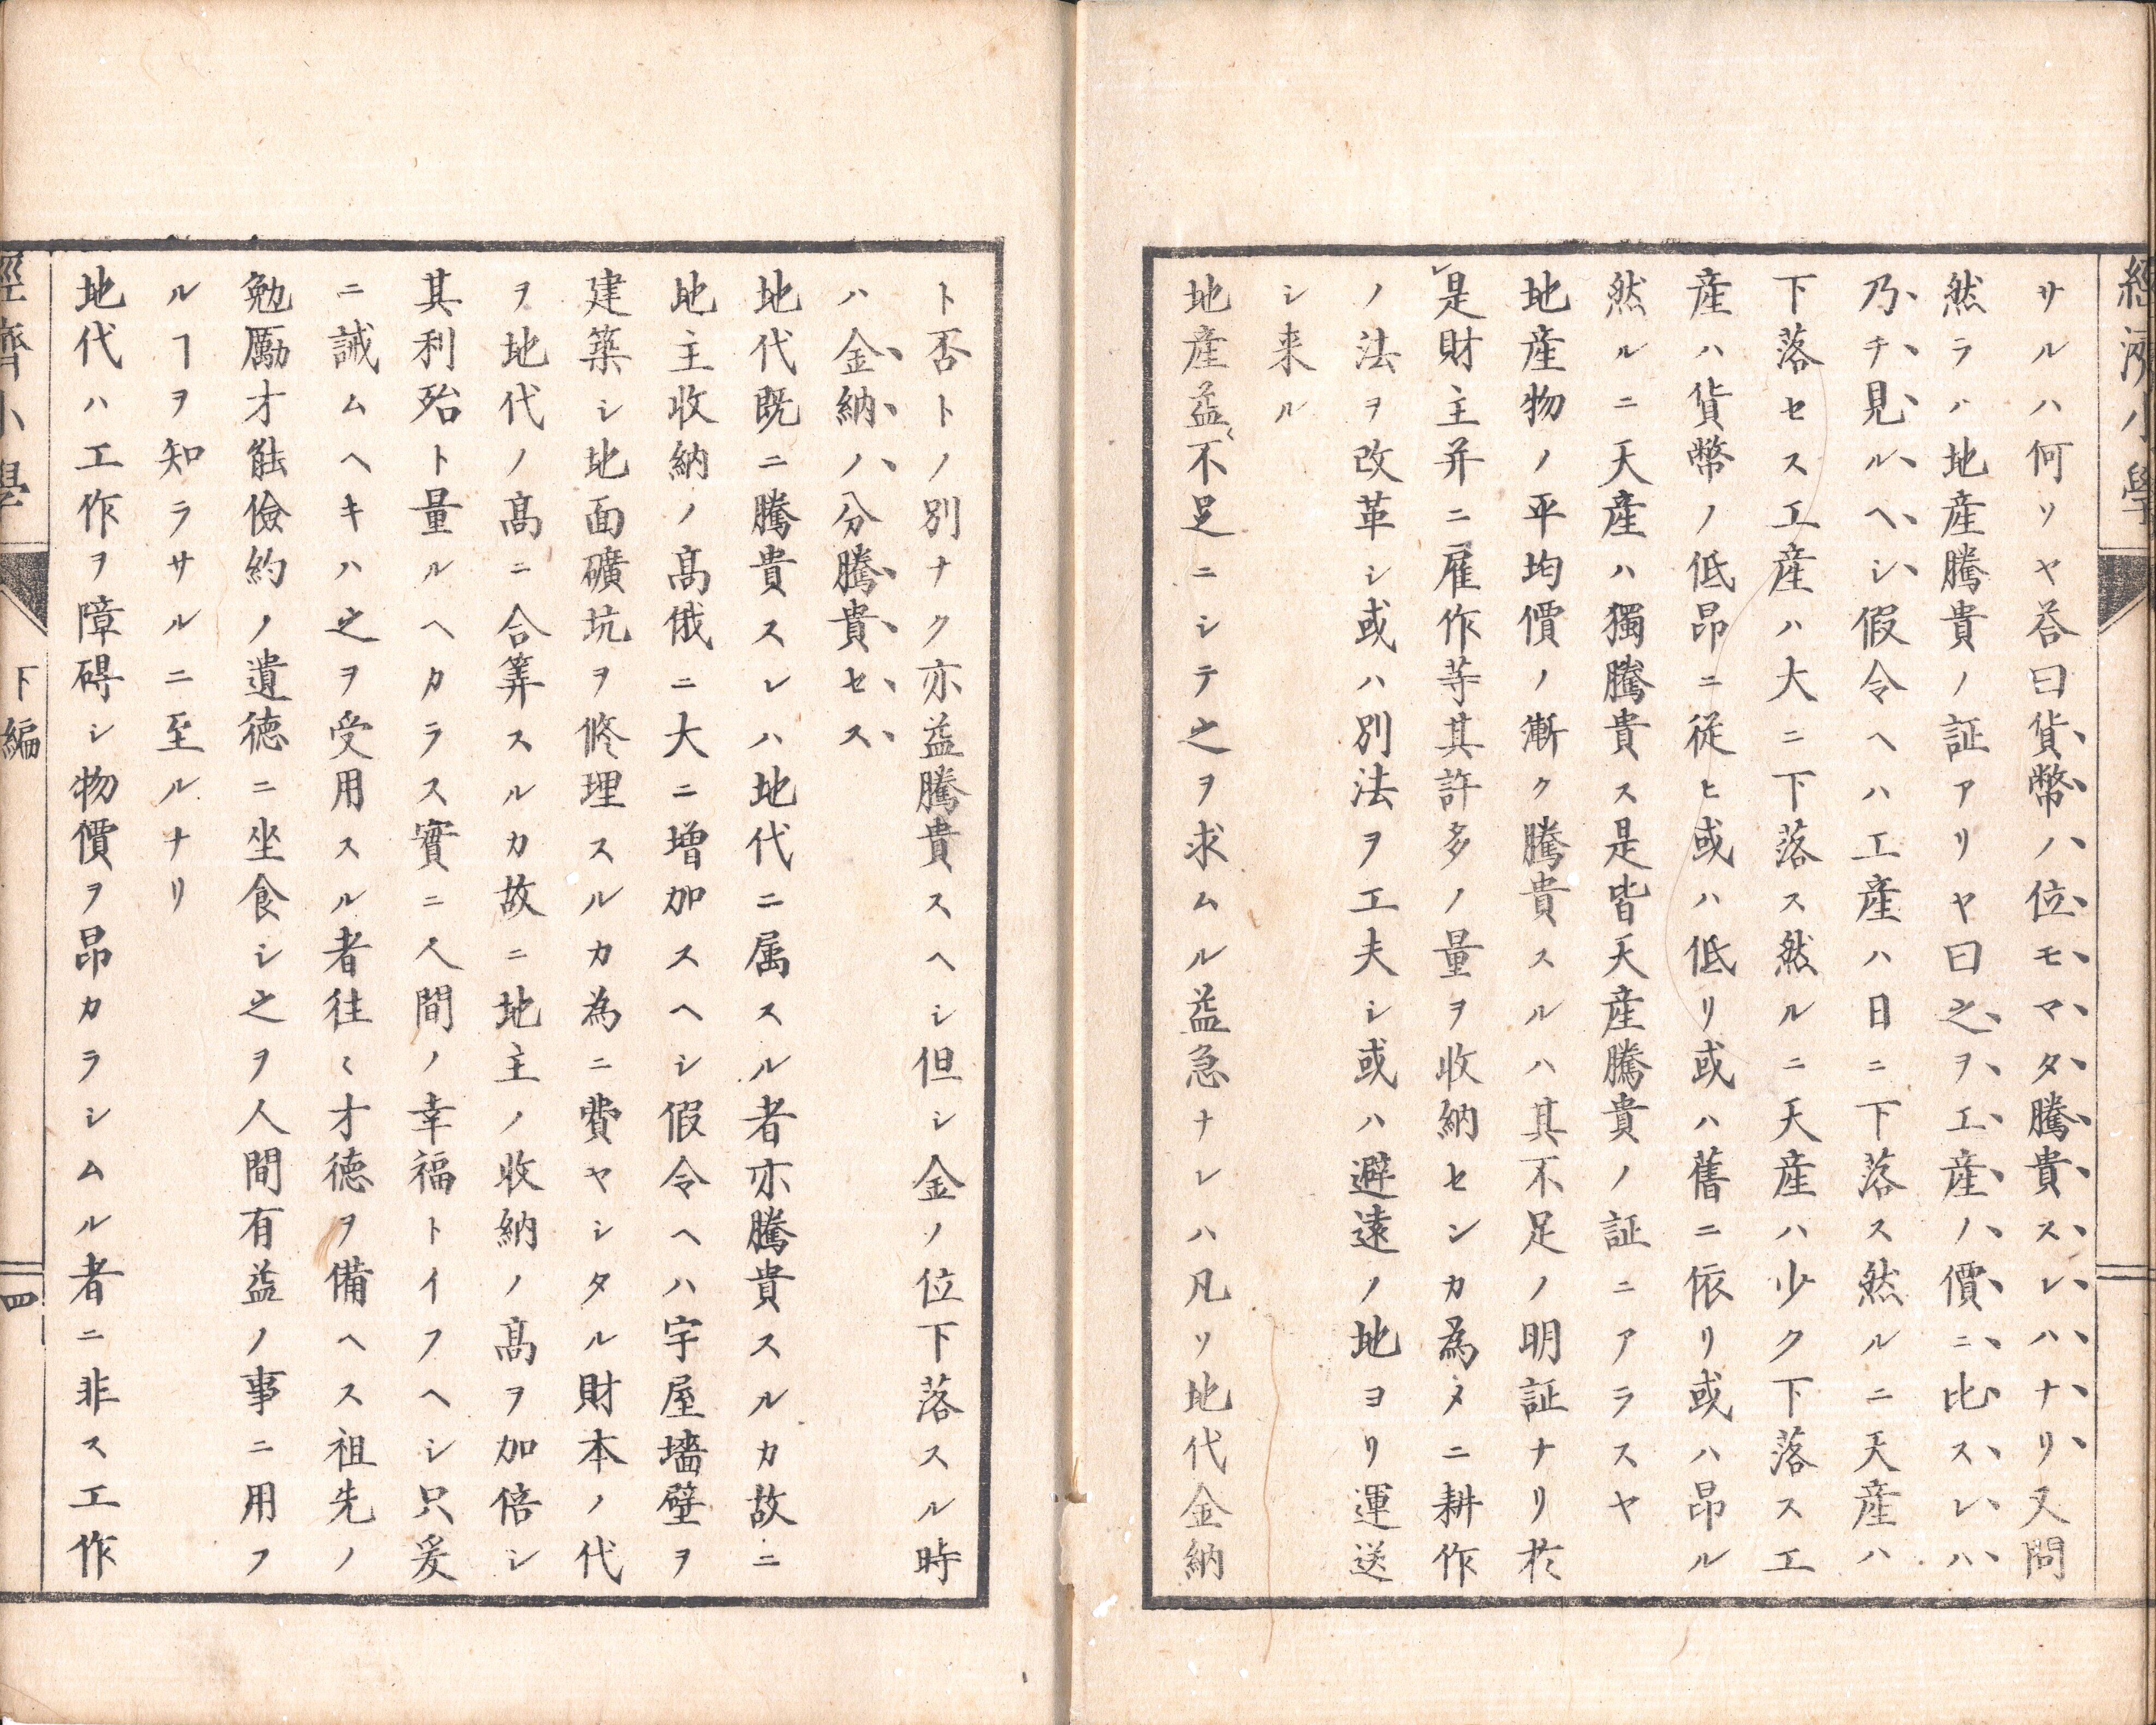 經濟小學
サルハ何ソヤ荅曰貨幣ハ位モマタ騰貴スレハナリ又問
然ラハ地産騰貴ノ証アリヤ曰之ヲ工産ノ價ニ比スレハ
乃チ見ルヘシ假令ヘハ工産ハ日ニ下落ス然ルニ天産ハ
下落セス工産ハ大ニ下落ス然ルニ天産ハ少ク下落ス工
産ハ貨幣ノ低昂ニ従ヒ或ハ低リ或ハ舊ニ依リ或ハ昂ル
然ルニ天産ハ獨騰貴ス是皆天産騰貴ノ証ニアラスヤ
地産物ノ平均價ノ漸ク騰貴スルハ其不足ノ明証ナリ於
是財主并ニ雇作等其許多ノ量ヲ收納センカ為メニ耕作
ノ法ヲ改革シ或ハ別法ヲ工夫シ或ハ避遠ノ地ヨリ運送
シ来ル
地産益〻不足ニシテ之ヲ求ムル益急ナレハ凡ソ地代金納
ト否トノ別ナク亦益騰貴スヘシ但シ金ノ位下落スル時
ハ金納ノ分騰貴セス
地代既ニ騰貴スレハ地代ニ属スル者亦騰貴スルカ故ニ
地主收納ノ高俄ニ大ニ増加スヘシ假令ヘハ宇屋墻壁ヲ
建築シ地面礦坑ヲ修理スルカ為ニ費ヤシタル財本ノ代
ヲ地代ノ高ニ合筭スルカ故ニ地主ノ收納ノ高ヲ加倍シ
其利殆ト量ルヘカラス實ニ人間ノ幸福トイフヘシ只爰
ニ誡ムヘキハ之ヲ受用スル者往〻才徳ヲ備ヘス祖先ノ
勉勵才能儉約ノ遺徳ニ坐食シ之ヲ人間有益ノ事ニ用フ
ルヿヲ知ラサルニ至ルナリ
地代ハ工作ヲ障碍シ物價ヲ昂カラシムル者ニ非ス工作
經濟小學
下編
四